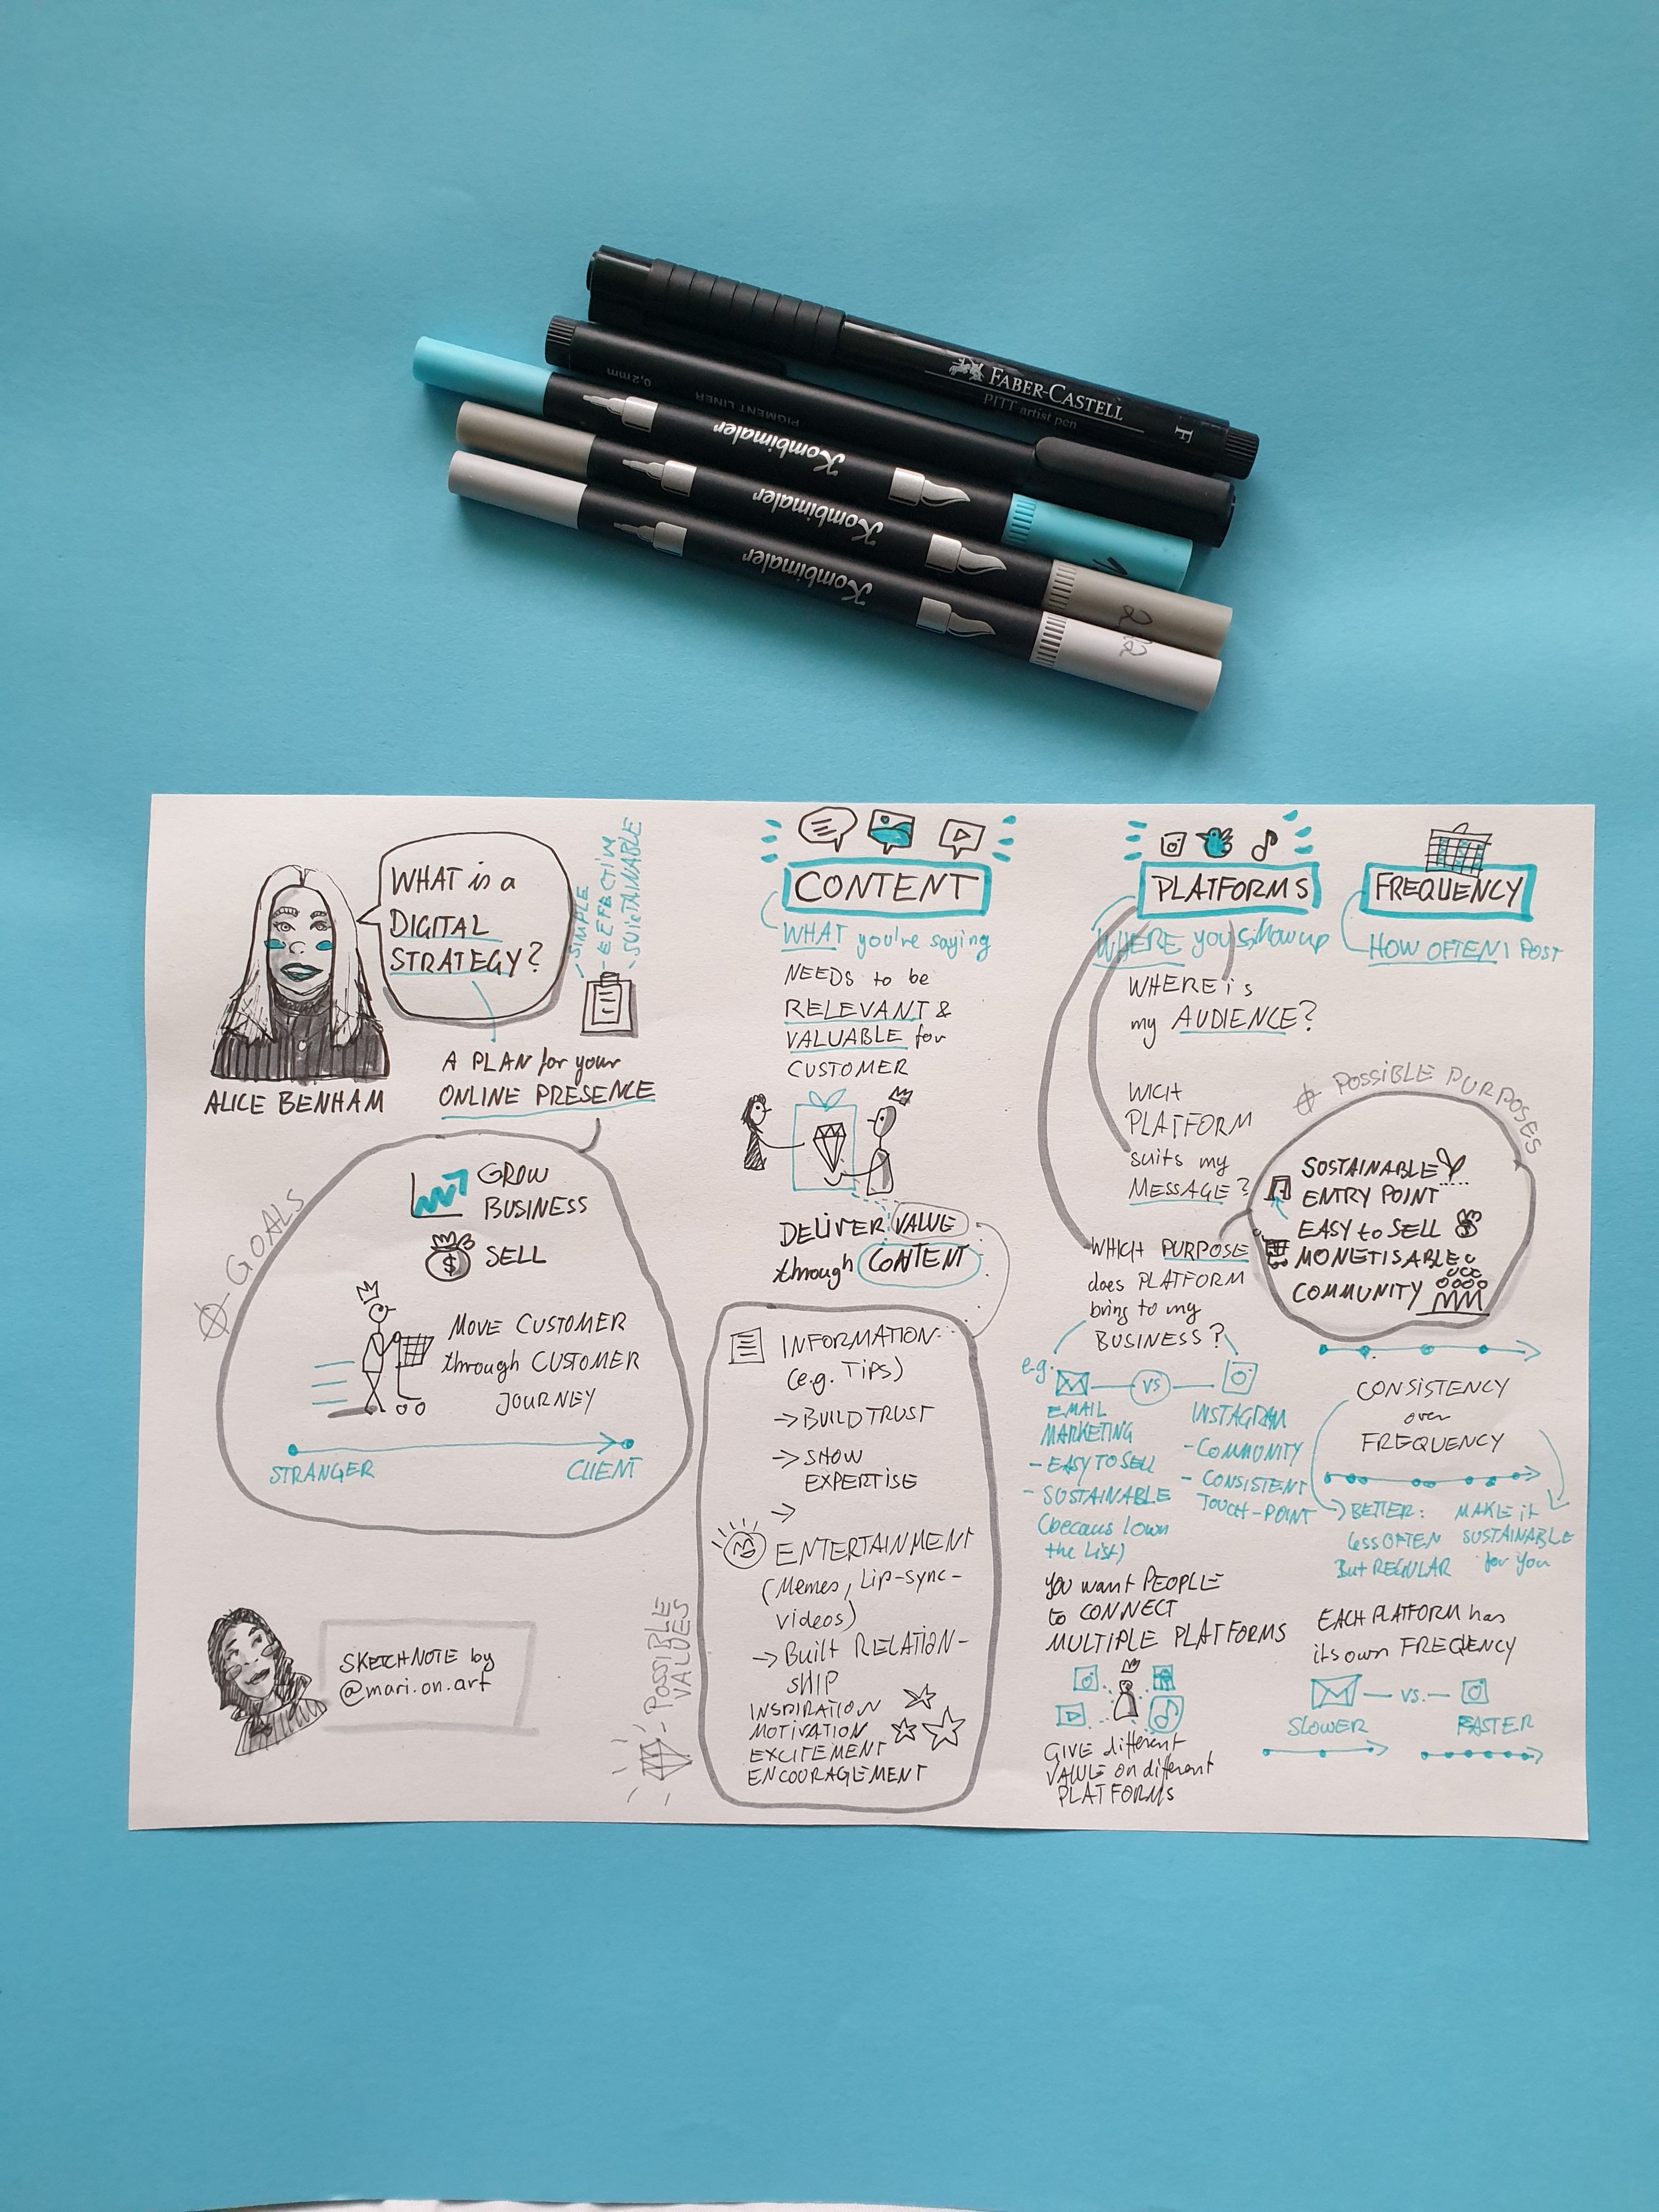 FABER-CASTELL
PITT artist pen
F
0,2mm
PIGMENT LINER
Kombimaler
Kombimaler
Kombimaler
WHAT is a
DIGITAL
STRATEGY?
- SIMPLE
- EFFECTIV
- SUSTAINABLE
A PLAN for your
ONLINE PRESENCE
ALICE BENHAM
GOALS
GROW
BUSINESS
$ SELL
MOVE CUSTOMER
through CUSTOMER
JOURNEY
STRANGER
CLIENT
SKETCHNOTE by
@mari.on.art
CONTENT
WHAT you're saying
NEEDS to be
RELEVANT &
VALUABLE for
CUSTOMER
DELIVER VALUE
through CONTENT
POSSIBLE
VALUES
INFORMATION
(e.g. Tips)
-> BUILD TRUST
-> SHOW
EXPERTISE
->
ENTERTAINMENT
(Memes, Lip-sync-
videos)
-> Built RELATION-
SHIP
INSPIRATION
MOTIVATION
EXCITEMENT
ENCOURAGEMENT
PLATFORMS
WHERE you show up
WHERE is
my AUDIENCE?
WICH
PLATFORM
suits my
MESSAGE?
WHICH PURPOSE
does PLATFORM
bring to my
BUSINESS?
POSSIBLE PURPOSES
SOSTAINABLE
ENTRY POINT
EASY to SELL $
MONETISABLE
COMMUNITY
e.g.
VS
EMAIL
MARKETING
- EASY TO SELL
- SUSTAINABLE
(becaus I own
the List)
INSTAGRAM
- COMMUNITY
- CONSISTENT
TOUCH-POINT
YOU want PEOPLE
to CONNECT
MULTIPLE PLATFORMS
GIVE different
VALUE on different
PLATFORMS
FREQUENCY
HOW OFTEN I POST
CONSISTENCY
over
FREQUENCY
BETTER:
less OFTEN
But REGULAR
MAKE it
SUSTAINABLE
for you
EACH PLATFORM has
its own FREQUENCY
- VS. -
SLOWER
FASTER